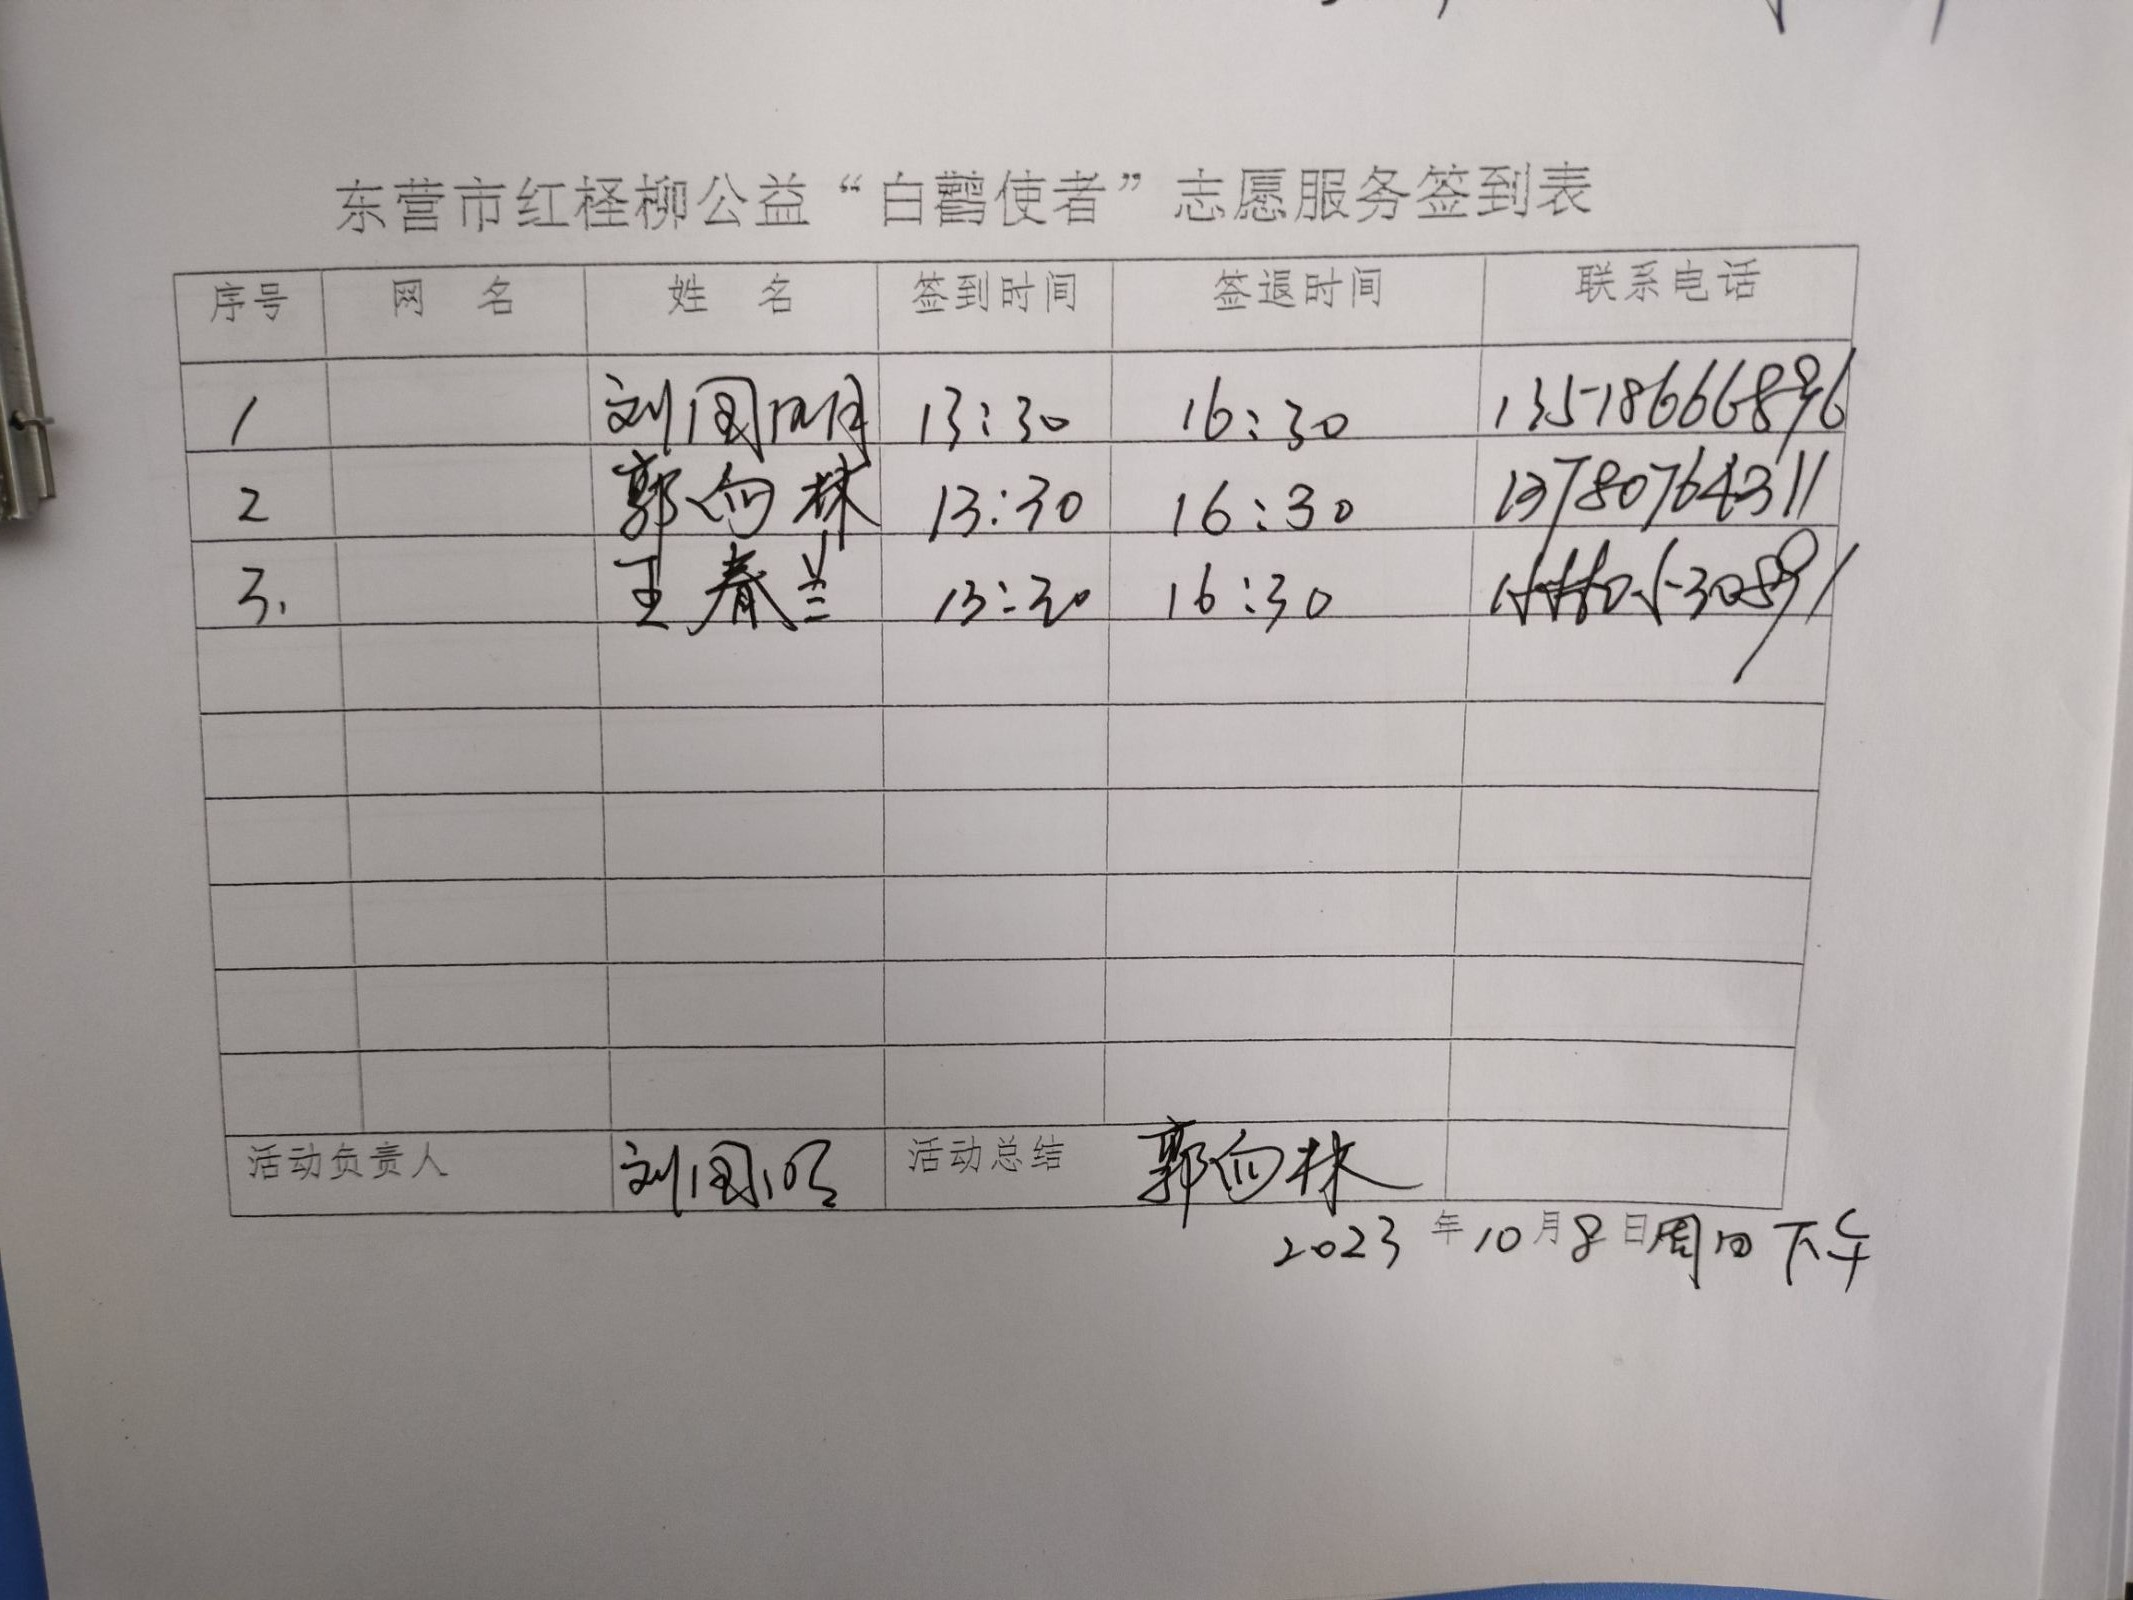 东营市红柽柳公益“白鹳使者”志愿服务签到表
序号 网 名 姓 名 签到时间 签退时间 联系电话
1 刘国明 13:30 16:30 13518666896
2 郭向林 13:30 16:30 13780764311
3. 王春兰 13:30 16:30
活动负责人 刘国明 活动总结 郭向林
2023年10月8日周日下午